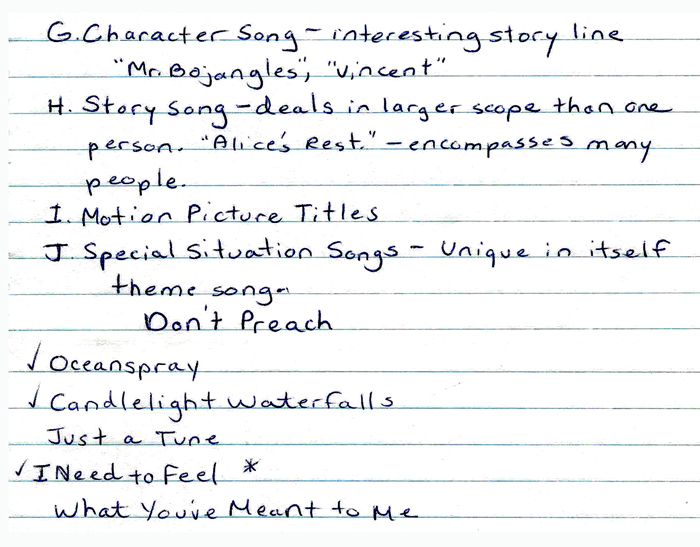 G. Character Song - interesting story line
"Mr. Bojangles", "Vincent"
H. Story Song - deals in larger scope than one
person. "Alice's Rest." - encompasses many
people.
I. Motion Picture Titles
J. Special Situation Songs - Unique in itself
theme song -
Don't Preach
✓ Oceanspray
✓ Candlelight Waterfalls
Just a Tune
✓ I Need to Feel *
What You've Meant to Me